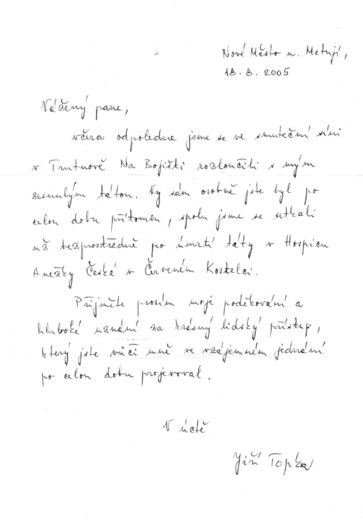 Nové Město n. Metují,
18. 8. 2005
Vážený pane,
včera odpoledne jsme se ve smuteční síni
v Trutnově Na Bojišti rozloučili s mým
zesnulým tátou. Vy sám osobně jste byl po
celou dobu přítomen, spolu jsme se setkali
už bezprostředně po úmrtí táty v Hospicu
Anežky České v Červeném Kostelci.
Přijměte prosím moje poděkování a
hluboké uznání za krásný lidský přístup,
který jste vůči mně ve vzájemném jednání
po celou dobu projevoval.
V úctě
Jiří